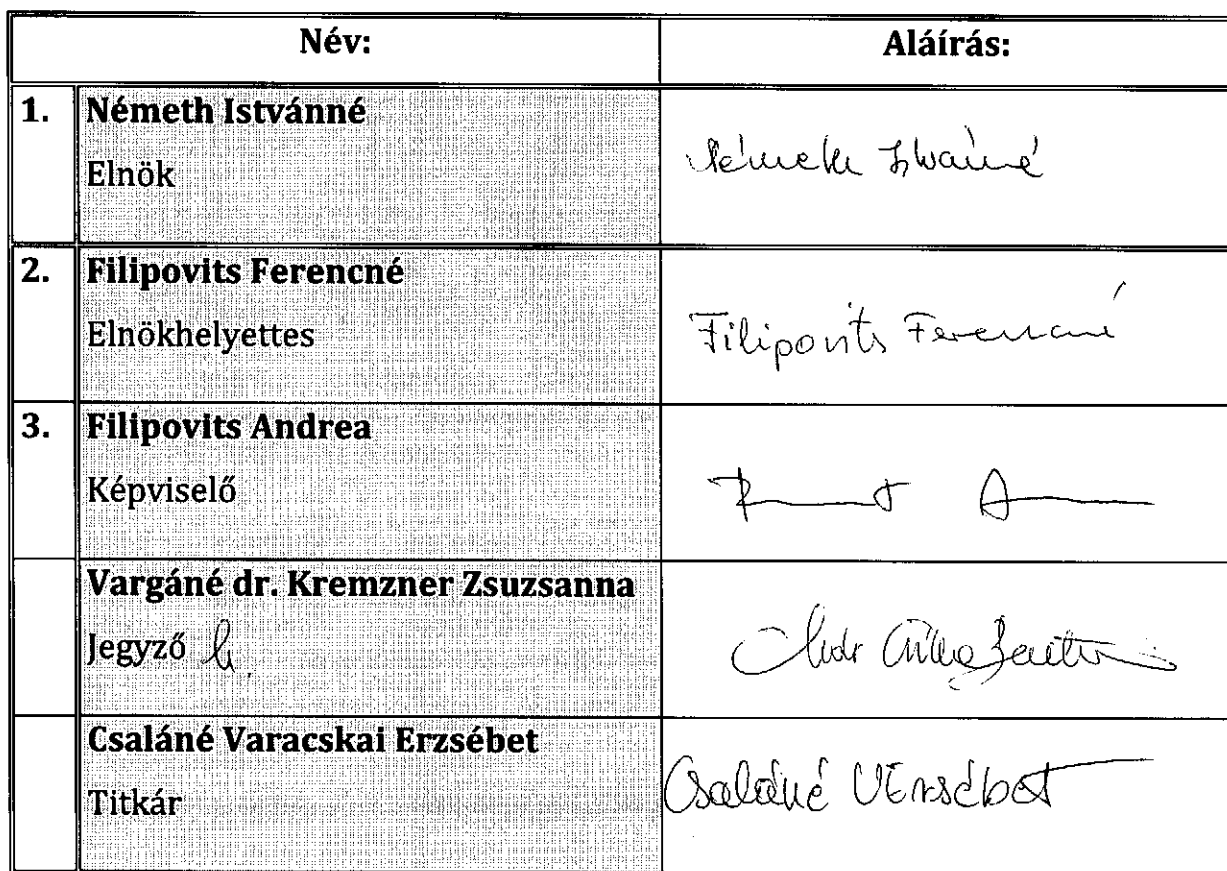 Név: Aláírás:
1. Németh Istvánné Németh Istvánné
Elnök
2. Filipovits Ferencné
Elnökhelyettes Filipovits Ferencné
3. Filipovits Andrea
Képviselő
Vargáné dr. Kremzner Zsuzsanna
Jegyző h.
Csaláné Varacskai Erzsébet
Titkár Csaláné VErzsébet